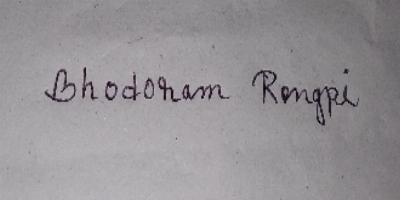 Bhodoram Rongpi